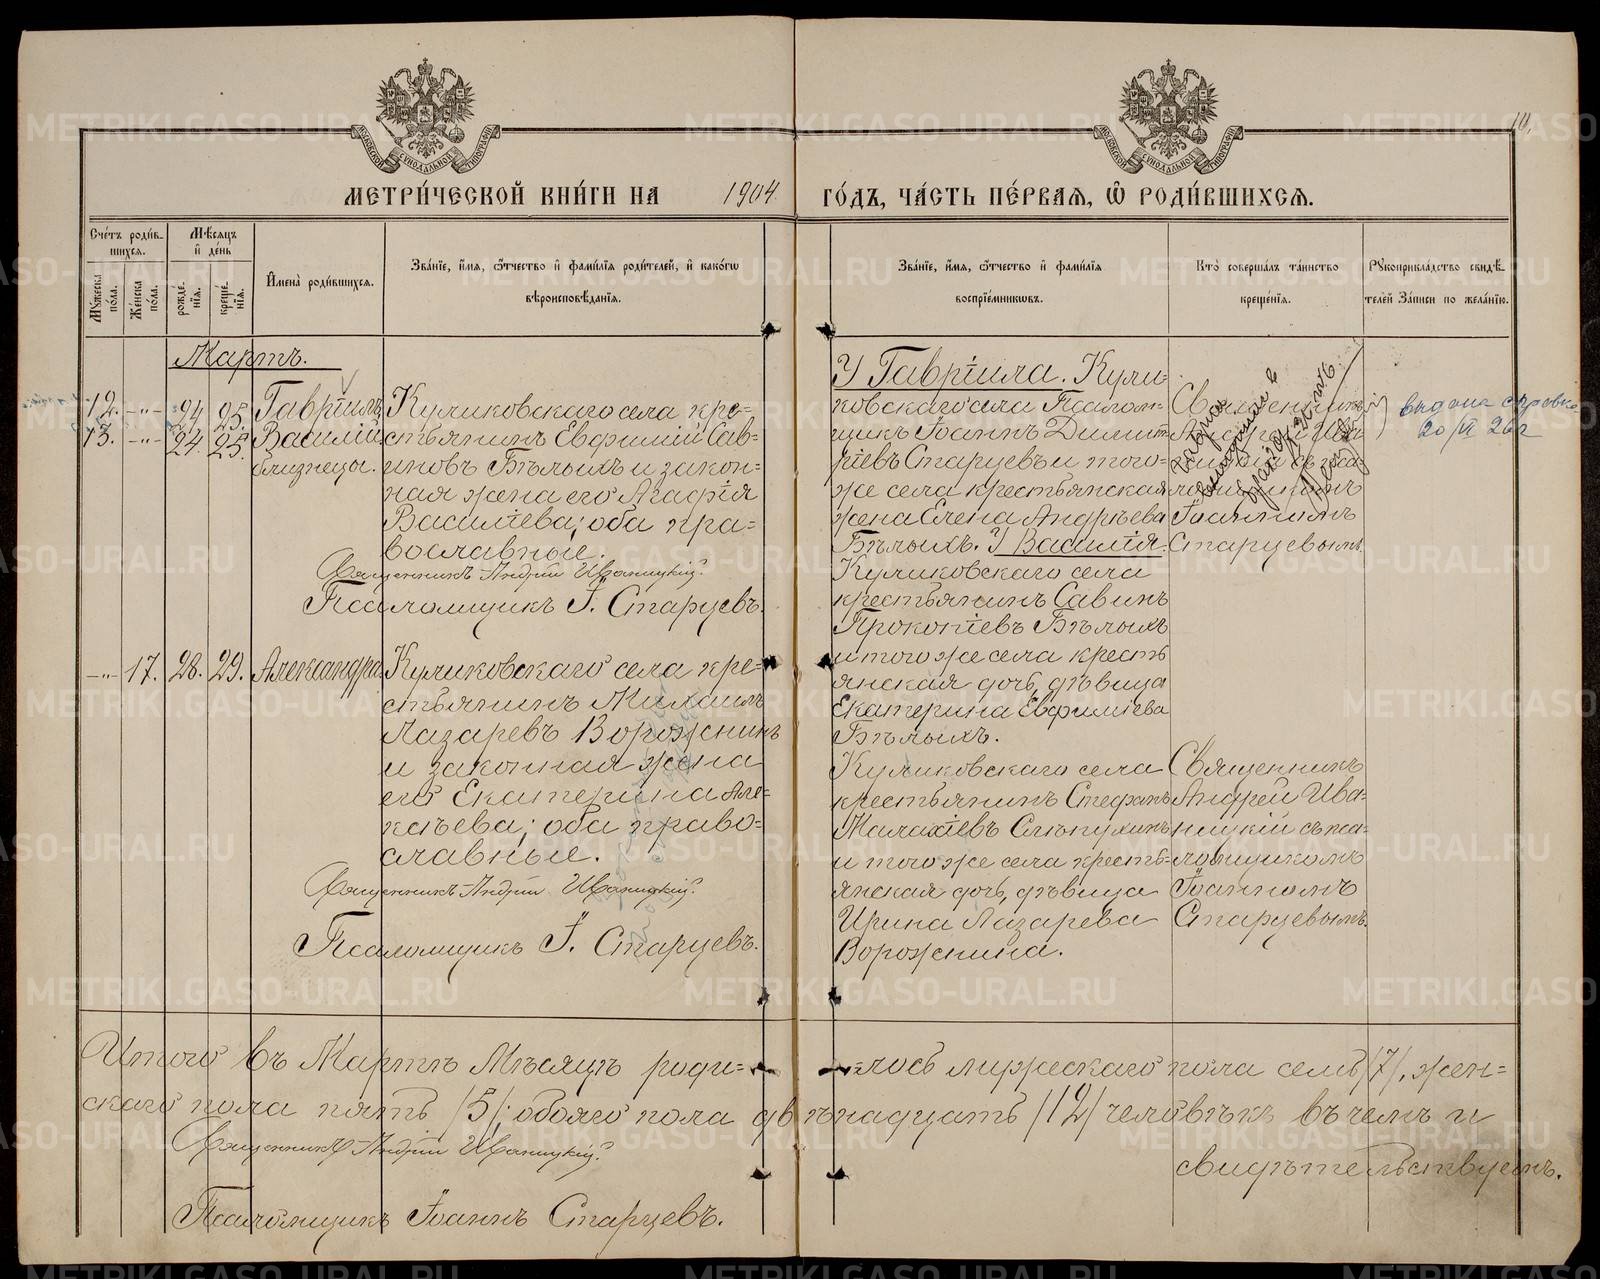 МЕТРИ́ЧЕСКОЙ КНИ́ГИ НА 1904. ГО́ДЪ, ЧА́СТЬ ПЕ́РВАѦ, Ѡ РОДИ́ВШИХСѦ.
Сче́тъ роди́в-
шихся.
Мꙋжеска по́ла.
Же́нска по́ла.
Мѣсяцъ
и де́нь
рожде́-
нїѧ.
креще́-
нїѧ.
Имена̀ роди́вшихсѧ.
Зва́нїе, и́мѧ, ѻ́тчество и фами́лїѧ роди́телей, и како́гѡ
вѣроисповѣ́данїѧ.
Зва́нїе, и́мѧ, ѻ́тчество и фами́лїѧ
воспрїе́мниковъ.
Кто̀ соверша́лъ та́инство
креще́нїѧ.
Рꙋкоприкла́дство свидѣ́-
телей За́писи по жела́нїю.
Мартъ.
12. -„- 24. 25. Гавріилъ
13. -„- 24. 25. Василій
близнецы.
Куликовскаго села кре-
стьянинъ Евфимій Сав-
иновъ Бѣлыхъ и закон-
ная жена его Агафія
Василіева; оба пра-
вославные.
Священникъ Андрій Иваницкій.
Псаломщикъ І. Старцевъ.
У Гавріила. Кули-
ковскаго села Псалом-
щикъ Іоаннъ Димит-
ріевъ Старцевъ и того-
же села крестьянская
жена Елена Андрѣева
Бѣлыхъ. У Василія.
Куликовскаго села
крестьянинъ Савинъ
Прокопіевъ Бѣлыхъ
и того же села кресть
янская дочь, дѣвица
Екатерина Евфиміева
Бѣлыхъ.
Священникъ
Андрей Ива-
ницкій съ пса-
ломщикомъ
Іоанномъ
Старцевымъ.
выдана справка
20/VI 26 г
-„- 17. 28. 29. Александра
Куликовскаго села кре-
стьянинъ Михаилъ
Лазаревъ Ворожнинъ
и законная жена
его Екатерина Але-
ксѣева; оба право-
славные.
Священникъ Андрій Иваницкій.
Псаломщикъ І. Старцевъ.
Куликовскаго села
крестьянинъ Стефанъ
Малахіевъ Слѣпухинъ
и того же села кресть-
янская дочь, дѣвица
Ирина Лазарева
Ворожнина.
Священникъ
Андрей Ива-
ницкій съ пса-
ломщикомъ
Іоанномъ
Старцевымъ.
Итого въ Мартѣ Мѣсяцѣ роди-
лось мужескаго пола семь /7/, жен-
скаго пола пять /5/; обоего пола двѣнадцать /12/ человѣкъ въ чемъ и
свидѣтельствуемъ.
Священникъ Андрій Иваницкій.
Псаломщикъ Іоаннъ Старцевъ.
METRIKI.GASO-URAL.RU